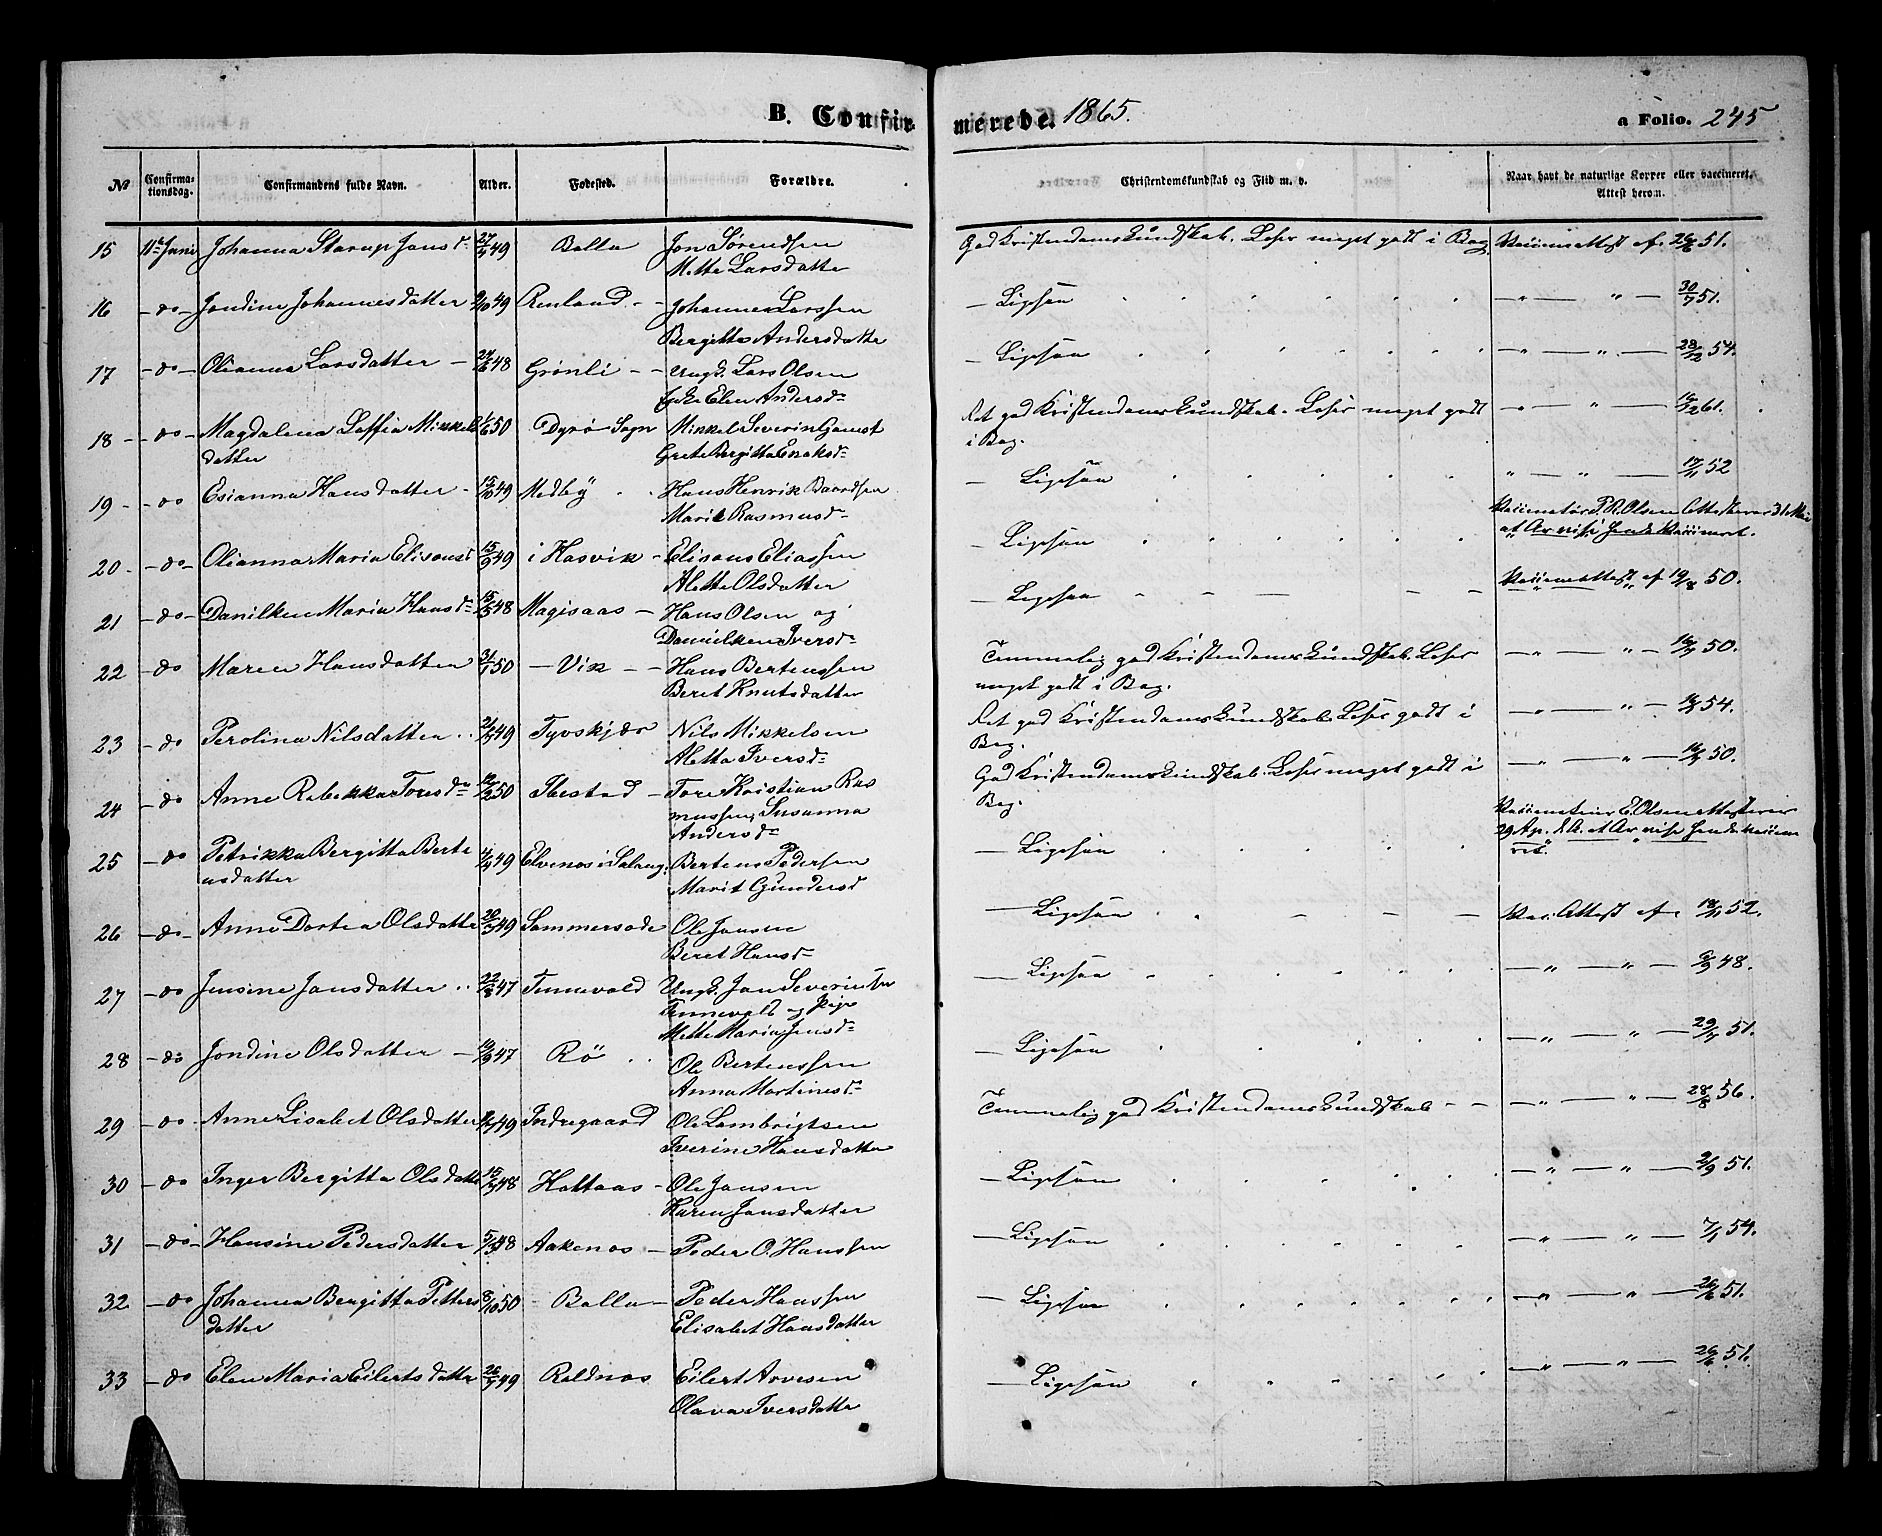 B. Confirmerede. 1865.
a Folio. 245
No
Confirmationsdag.
Confirmandens fulde Navn.
Alder.
Fødested.
Forældre.
Christendomskundskab og Flid m. v.
Naar havt de naturlige Kopper eller vaccineret. Attest herom.
15 11te Juni Johanna Starup Jansdr 49 Balla Jon Sørendsen
Mette Larsdatter
God Kristendomskundskab. Læser meget godt i Bog. Vaccineattest af 26/6 51.
16 -do- Jondine Johannesdatter 49 Renland Johannes Larssen
Bergitta Andersdatter
Ligesaa 30/7 51.
17 -do- Olianna Larsdatter 48 Grønli Ungk. Lars Olsen
Enke Elen Andersdr
Ligesaa 54.
18 -do- Magdalena Soffia Mikkels 50 Dyrø Sogn Mikkel Severin Gamst
datter Grete Bergitta Enoksdr
Ret god Kristendomskundskab. Læser meget godt
i Bog. 61.
19 -do Esianna Hansdatter 49 Medby Hans Henrik Baardsen
Marit Rasmusdr
Ligesaa 52
20 -do- Olianna Maria Eliseusdr 49 i Hasvik Elisæus Eliassen
Aletta Olsdatter
Ligesaa Vaccinatør P. R. Olsen Attesterer
at Arvise Hende Vaccineret.
21 -do- Danilken Maria Hansdr 48 Magisaas Hans Olsen og
Danilken Iversdr
Ligesaa Vaccineattest af 19/8 50.
22 -do Maren Hansdatter 50 Vik Hans Bertenssen
Beret Knutsdatter
Temmelig god Kristendomskundskab. Læser
meget godt i Bog. 50.
23 -do Perolina Nilsdatter 49 Tyvskjær Nils Mikkelsen
Aletta Iversdr
Ret god Kristendomskundskab. Læser godt i
Bog. 54.
24 -do Anne Rebekka Toresdr 50 Ibestad Tore Kristian Ras
mussen, Susanna
Andersdr
God Kristendomskundskab. Læser meget godt i
Bog. 50.
25 -do Petrikka Bergitta Berte 49 Elvenes i Salang: Berteus Pedersen
usdatter Marit Gundersd
Ligesaa Vaccinatør E. Olsen Attesterer
29 Ap. d. A. at Arvise Hende Vaccine
ret.
26 -do- Anne Dortea Olsdatter 49 Sommersæde Ole Jansen
Beret Hansdr
Ligesaa Vac. Attest af 52.
27 -do Jensine Jansdatter 47 Tennevold Ungk. Jan Severinsen
Tennevold og Pige
Mette Maria Jensdr
Ligesaa 48.
28 -do Jondine Olsdatter 47 Rø Ole Bertenssen
Anna Martinesdr
Ligesaa 51.
29 -do- Anne Lisabet Olsdatter 49 Indregaard Ole Lambrigtsen
Iverine Hansdatter
Temmelig god Kristendomskundskab 28/8 56.
30 -do- Inger Bergitta Olsdatter 48 Hattaas Ole Jansen
Karen Jansdatter
Ligesaa 2/9 51.
31 -do- Hansine Pedersdatter 48 Aakenes Peder O. Hanssen
Ligesaa 54.
32 -do Johanna Bergitta Petters 8/10 50 Balla Peder Hanssen
datter Elisabet Hansdatter
Ligesaa 26/6 51.
33 -do Elen Maria Eilertsdatter 49 Roldnos Eilert Arvesen
Olava Iversdatter
Ligesaa 26/6 51.